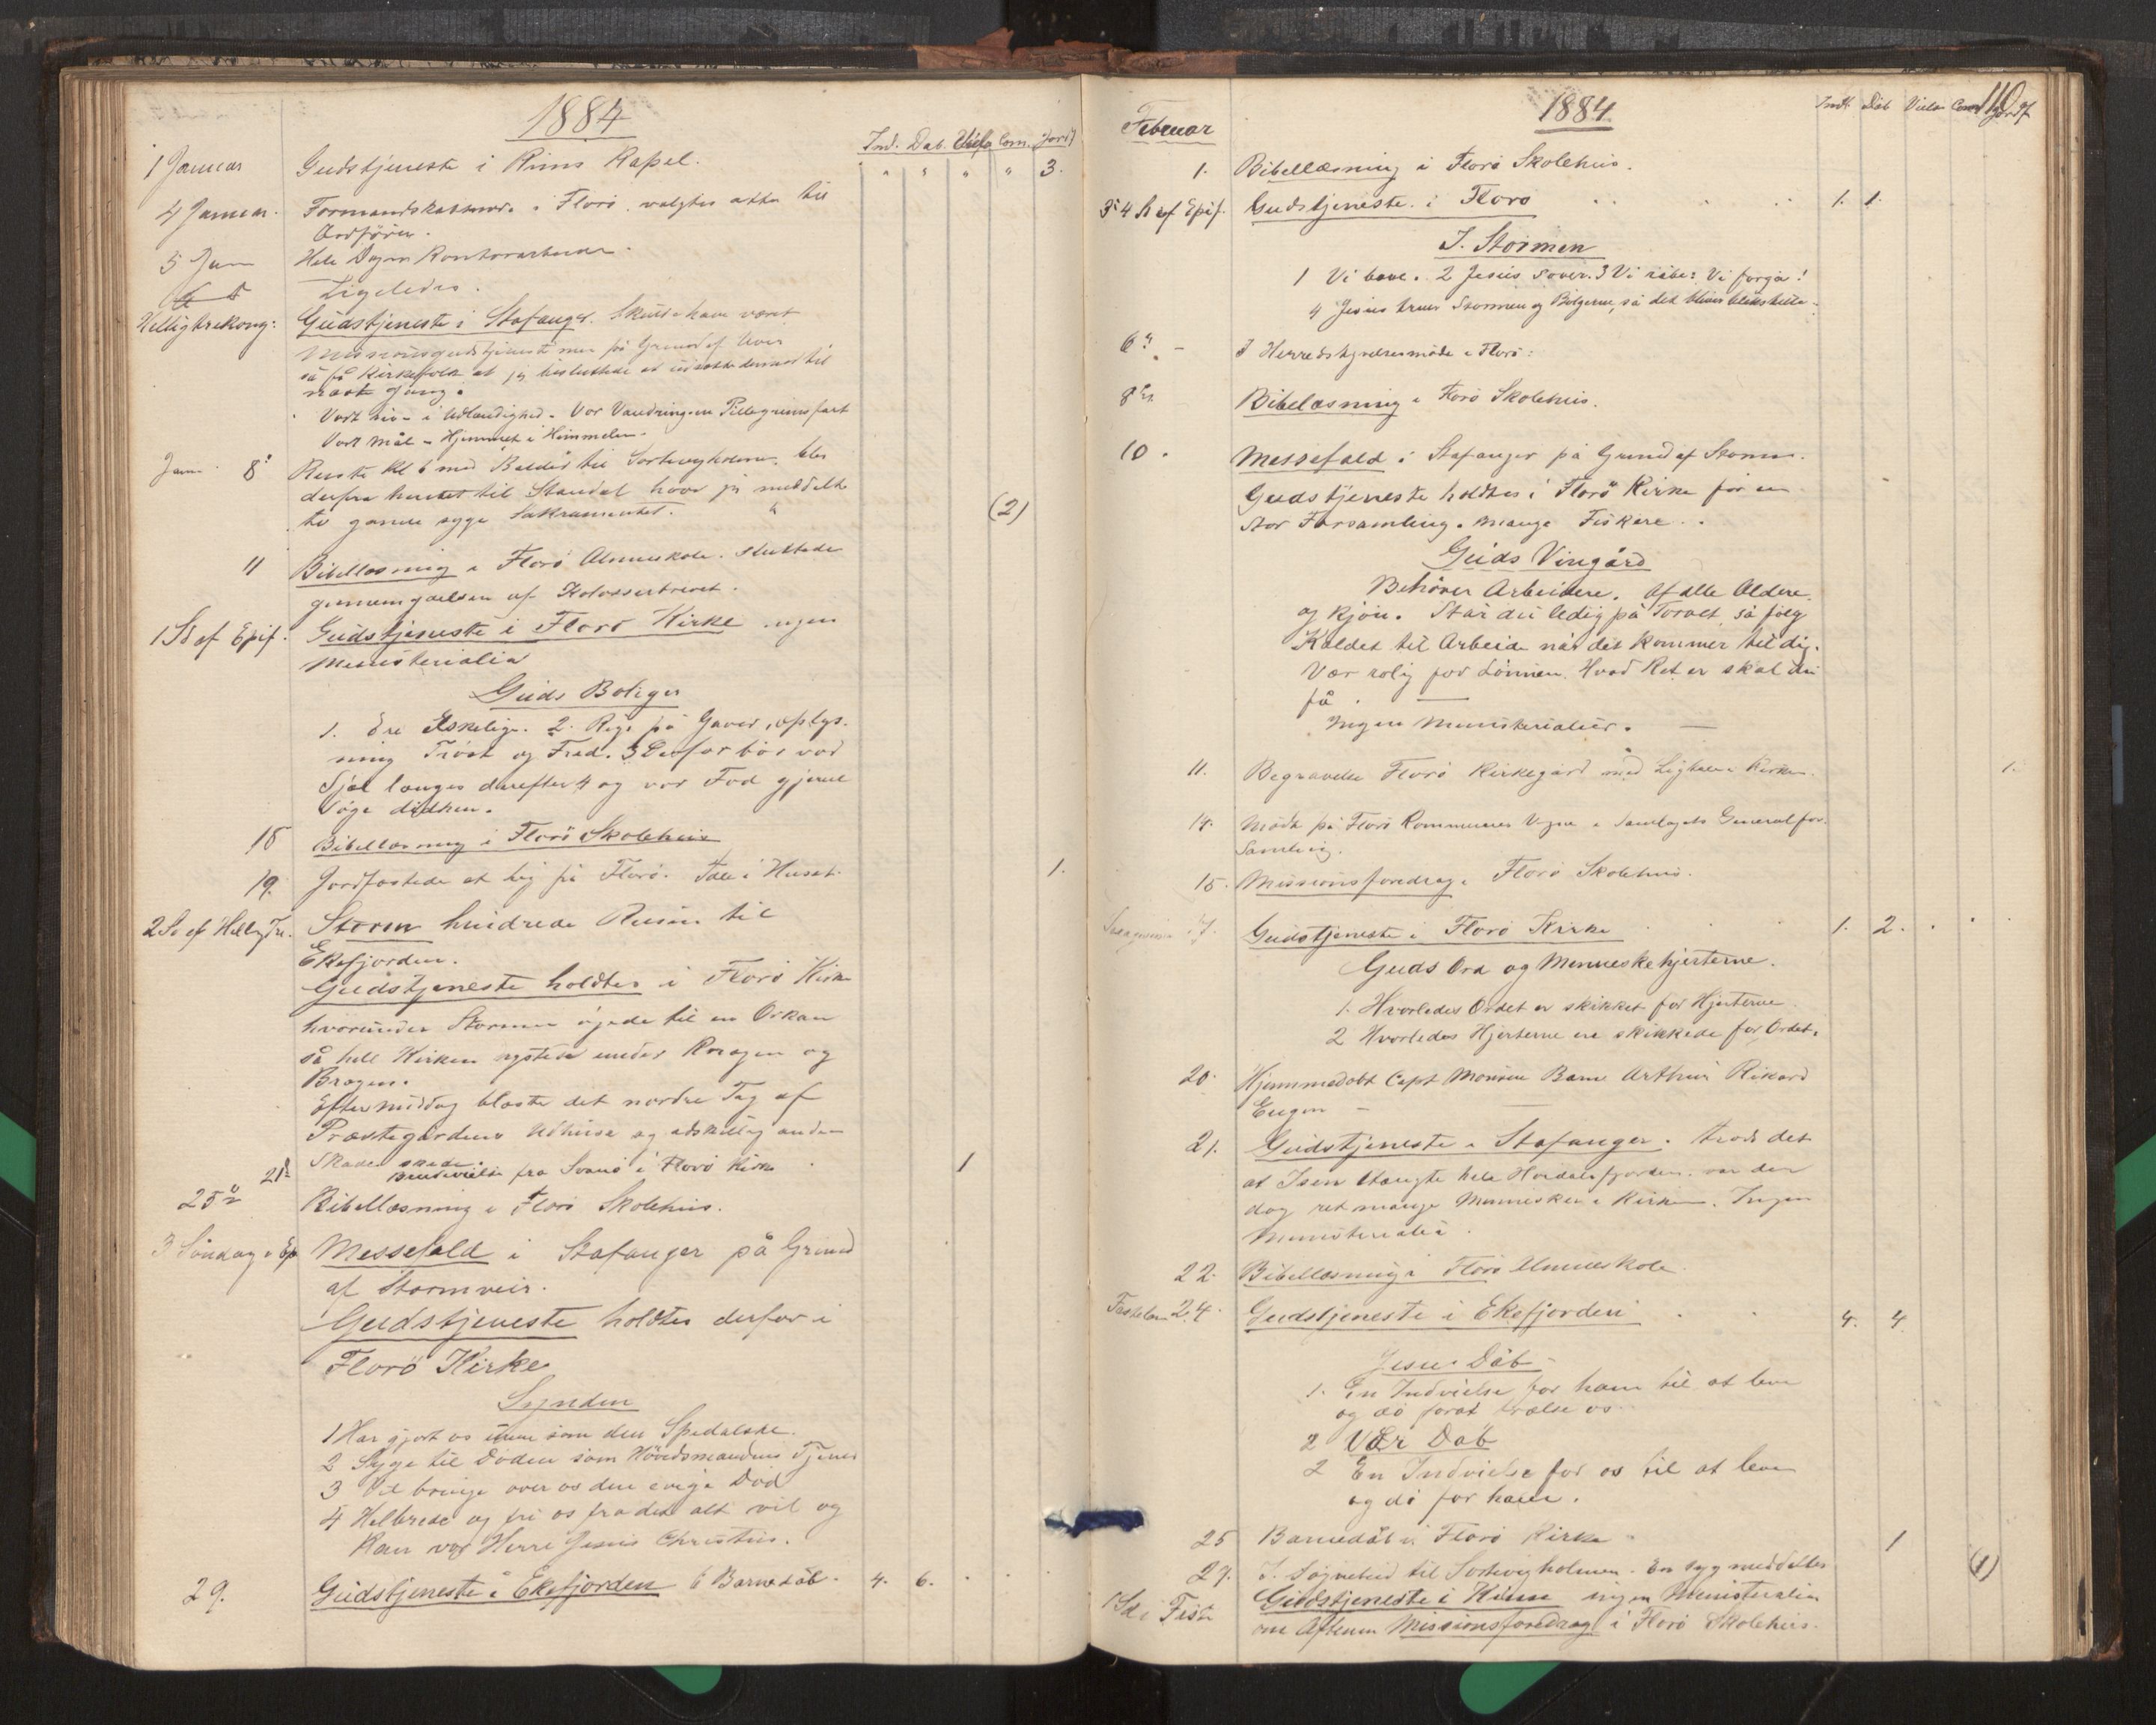 1884
Ind. Dab. Viels. Com. Jordf
1 Januar Gudstjeneste i Kinns Kapel. " " " " 3.
4 Januar. Formandskabsmøde i Florö. valgtes atter til
Ordfören.
5 Jan Hele Dagen Kontorarbeide.
6 Ligeledes.
Helligtrekong: Gudstjeneste i Stafanger. Skulde have været
Missionsgudstjeneste men på Grund af Uveir
så få Kirkefolk at jeg besluttede at udsætte dermed til
næste Gang.
Vort Liv - i Udlændighed. Vor Vandring en Pillegrimsfart
Vort Mål - Hjemmet i Himmelen.
Janu. 8de Reiste Kl 6 med Balder til Sortevigholmen, blev
derfra hentet til Standal hvor jeg meddelte
to gamle syge Sakramentet. (2)
11 Bibellæsning i Florö Almueskole. sluttede
gjennemgåelsen af Kolossærbrevet.
1 Sd af Epif. Gudstjeneste i Florö Kirke ingen
Ministerialia
Guds Boliger
1. Ere Elskelige. 2. Rige på Gaver, oplys-
ning Tröst og Fred. 3 Derfor bör vor
Sjæl længes derefter 4 og vor Fod gjerne
söge didhen.
18 Bibellæsning i Florö Skolehus
19. Jordfæstede et Lig på Florö. Tale i Huset. 1.
2 Sö ef Hellig Tre. Storm hindrede Reisen til
Ekefjorden.
Gudstjeneste holdtes i Florö Kirke
hvorunder Stormen ögede til en Orkan
så hele Kirken rystede under Knagen og
Bragen.
Eftermiddag blæste det nordre Tag af
Præstegårdens Udhuse og adskillig anden
Skade skede.
21de Brudevielse fra Svanö i Florö Kirke 1
25de Bibellæsning i Florö Skolehus.
3 Söndag e Ep Messefald i Stafanger på Grund
af Stormveir.
Gudstjeneste holdtes derfor i
Florö Kirke
Synden
1 Har gjort os urene som den Spedalske.
2 Syge til Döden som Hövedsmandens Tjener
3 Vil bringe over os den evige Död
4 Helbrede og fri os fra det alt vil og
kan vor Herre Jesus Christus.
29. Gudstjeneste i Ekefjorden 6 Barnedåb. 4. 6.
110
Februar 1884
Indl. Dåb Viels Com Jordf
1. Bibellæsning i Florö Skolehus.
3de 4 S ef Epif. Gudstjeneste i Florö 1. 1.
I. Stormen
1 Vi bæve. 2 Jesus sover. 3 Vi råbe: Vi forgå!
4 Jesus truer Stormen og Bölgerne, så det bliver blikstille.
6te I Herredstyrelsesmöde i Florö:
8de Bibelæsning i Florö Skolehus.
10. Messefald i Stafanger på Grund af Storm.
Gudstjeneste holdtes i Florö Kirke for en
stor Forsamling. mange Fiskere.
Guds Vingård
Behöver Arbeidere. af alle Aldere
og Kjön. Står du ledig på Torvet, så fölg
Kaldet til Arbeide når det kommer til dig.
Vær rolig for Lönnen. Hvad Ret er skal du
få.
Ingen Ministerialier.
11. Begravelse Florö Kirkegård med Ligtale i Kirken. 1.
14. Mödte på Florö Kommunes Vegne i Samlagets Generalfor-
samling.
15. Missionsforedrag i Florö Skolehus.
17. Gudstjeneste i Florö Kirke 1. 2.
Guds Ord og Menneskehjerterne.
1. Hvorledes Ordet er skikket for Hjerterne
2 Hvorledes Hjerterne ere skikkede for Ordet.
20. Hjemmedöbt Capt Monsens Barn Arthur Rikard
Eugen
21. Gudstjeneste i Stafanger. trods det
at Isen stængte hele Hordalsfjorden. var der
dog ret mange Mennesker i Kirken. Ingen
Ministerialia.
22. Bibellæsning i Florö Almueskole.
Fastelavn 24. Gudstjeneste i Ekefjorden 4. 4.
Jesu Dåb
1. En Indvielse for ham til at leve
og dö forat frelse os.
2 Vor Dåb
2 En Indvielse for os til at leve
og dö for ham.
25 Barnedåb i Florö Kirke 1
27. I Sognebud til Sortevigholmen. En syg meddeltes (1)
1 Sd i Faste Gudstjeneste i Kinn ingen Ministerialia
om Aftenen Missionsforedrag i Florö Skolehus.